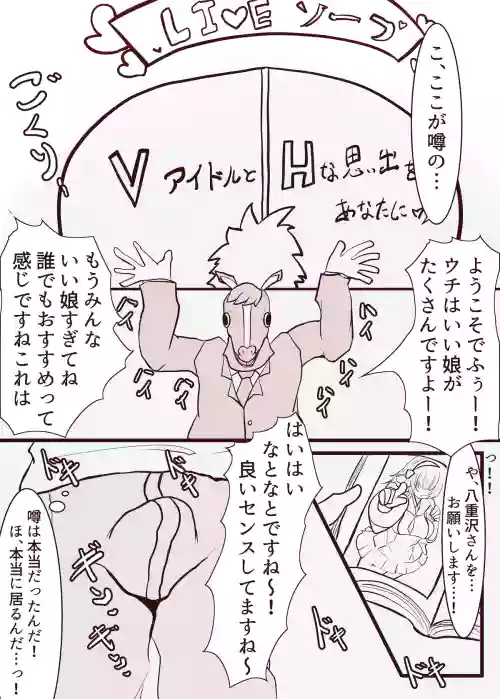 LIVE ソープ
こ、ここが噂の…
ごくり
V アイドルと Hな思い出を
あなたに♥
ようこそでふぅー！
ウチはいい娘が
たくさんですよー！
もうみんな
いい娘すぎてね
誰でもおすすめって
感じですねこれは
っ！！
や、八重沢さんを…
お願いします…！
はいはい
なとなとですね～！
良いセンスしてますね～
ドキ
ドキ
ギン
ギン
噂は本当だったんだ！
ほ、本当に居るんだ…っ！
ドキ
ドキ